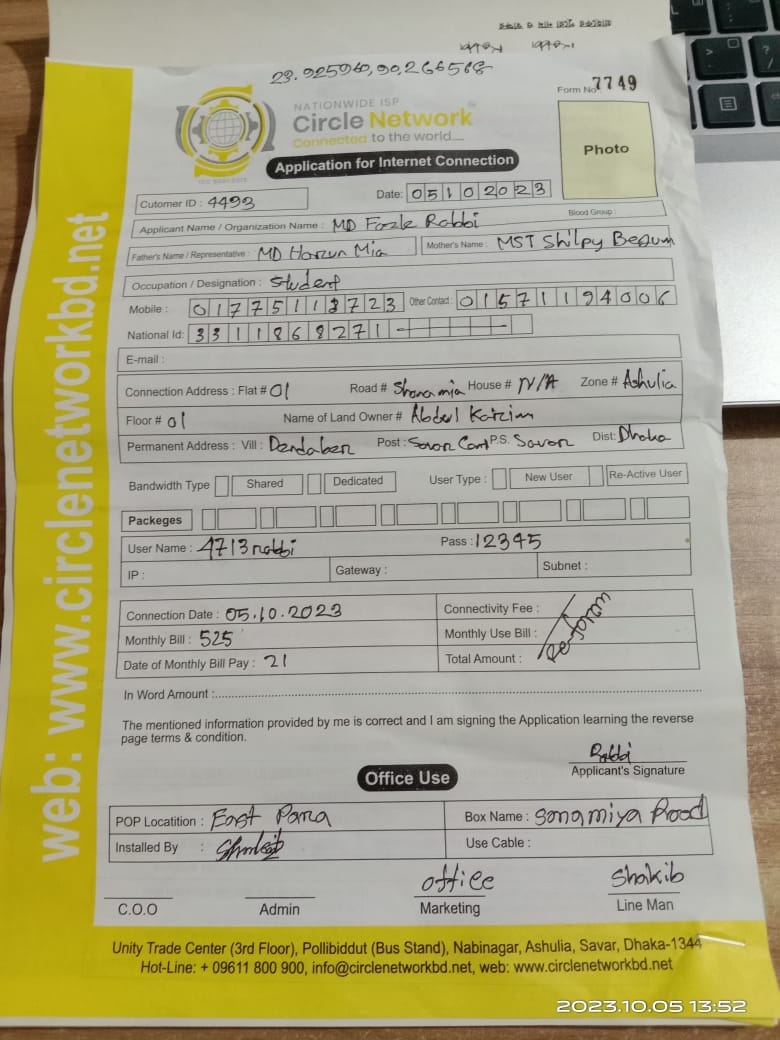 23.925940,90.266568
Form No 7749
NATIONWIDE ISP
Circle Network
Connected to the world....
Application for Internet Connection
Photo
Cutomer ID : 4493
Date: 05102023
Applicant Name / Organization Name : MD Fazle Rabbi
Blood Group :
Father's Name / Representative : MD Harun Mia
Mother's Name : MST Shilpy Begum
Occupation / Designation : Student
Mobile : 01775113723 Other Contact : 01571194006
National Id: 3311868271
E-mail :
Connection Address : Flat # 01 Road # Shonamia House # N/A Zone # Ashulia
Floor # 01 Name of Land Owner # Abdul Karim
Permanent Address : Vill : Dendaber Post : Savar Cant P.S. Savar Dist: Dhaka
Bandwidth Type Shared Dedicated User Type : New User Re-Active User
Packeges
User Name : 4713rabbi Pass : 12345
IP : Gateway : Subnet :
Connection Date : 05.10.2023 Connectivity Fee :
Monthly Bill : 525 Monthly Use Bill :
Date of Monthly Bill Pay : 21 Total Amount :
Re-form
In Word Amount :
The mentioned information provided by me is correct and I am signing the Application learning the reverse
page terms & condition.
Rabbi
Applicant's Signature
Office Use
POP Locatition : East Para Box Name : Sonamiya Road
Installed By : Use Cable :
office Shakib
C.O.O Admin Marketing Line Man
Unity Trade Center (3rd Floor), Pollibiddut (Bus Stand), Nabinagar, Ashulia, Savar, Dhaka-1344
Hot-Line: + 09611 800 900, info@circlenetworkbd.net, web: www.circlenetworkbd.net
web: www.circlenetworkbd.net
2023.10.05 13:52